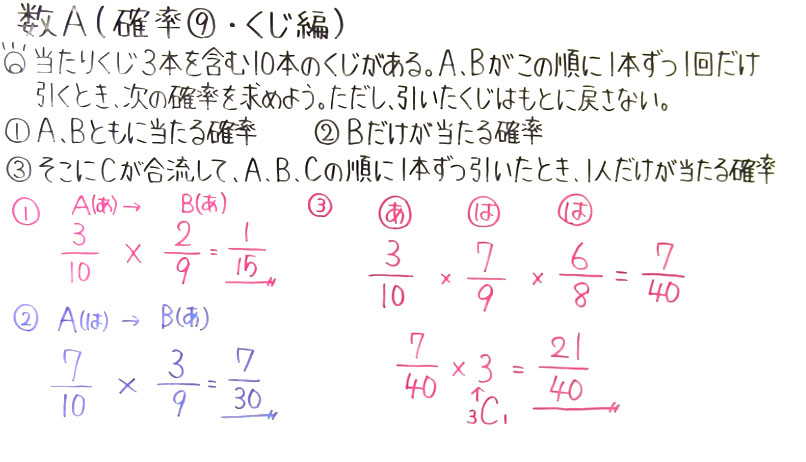 数A(確率⑨・くじ編)
◎当たりくじ3本を含む10本のくじがある。A、Bがこの順に1本ずつ1回だけ
引くとき、次の確率を求めよう。ただし、引いたくじはもとに戻さない。
①A、Bともに当たる確率 ②Bだけが当たる確率
③そこにCが合流して、A、B、Cの順に1本ずつ引いたとき、1人だけが当たる確率
① A(あ)→ B(あ)
3/10 × 2/9 = 1/15
② A(は)→ B(あ)
7/10 × 3/9 = 7/30
③ あ は は
3/10 × 7/9 × 6/8 = 7/40
7/40 × 3 = 21/40
↑
₃C₁